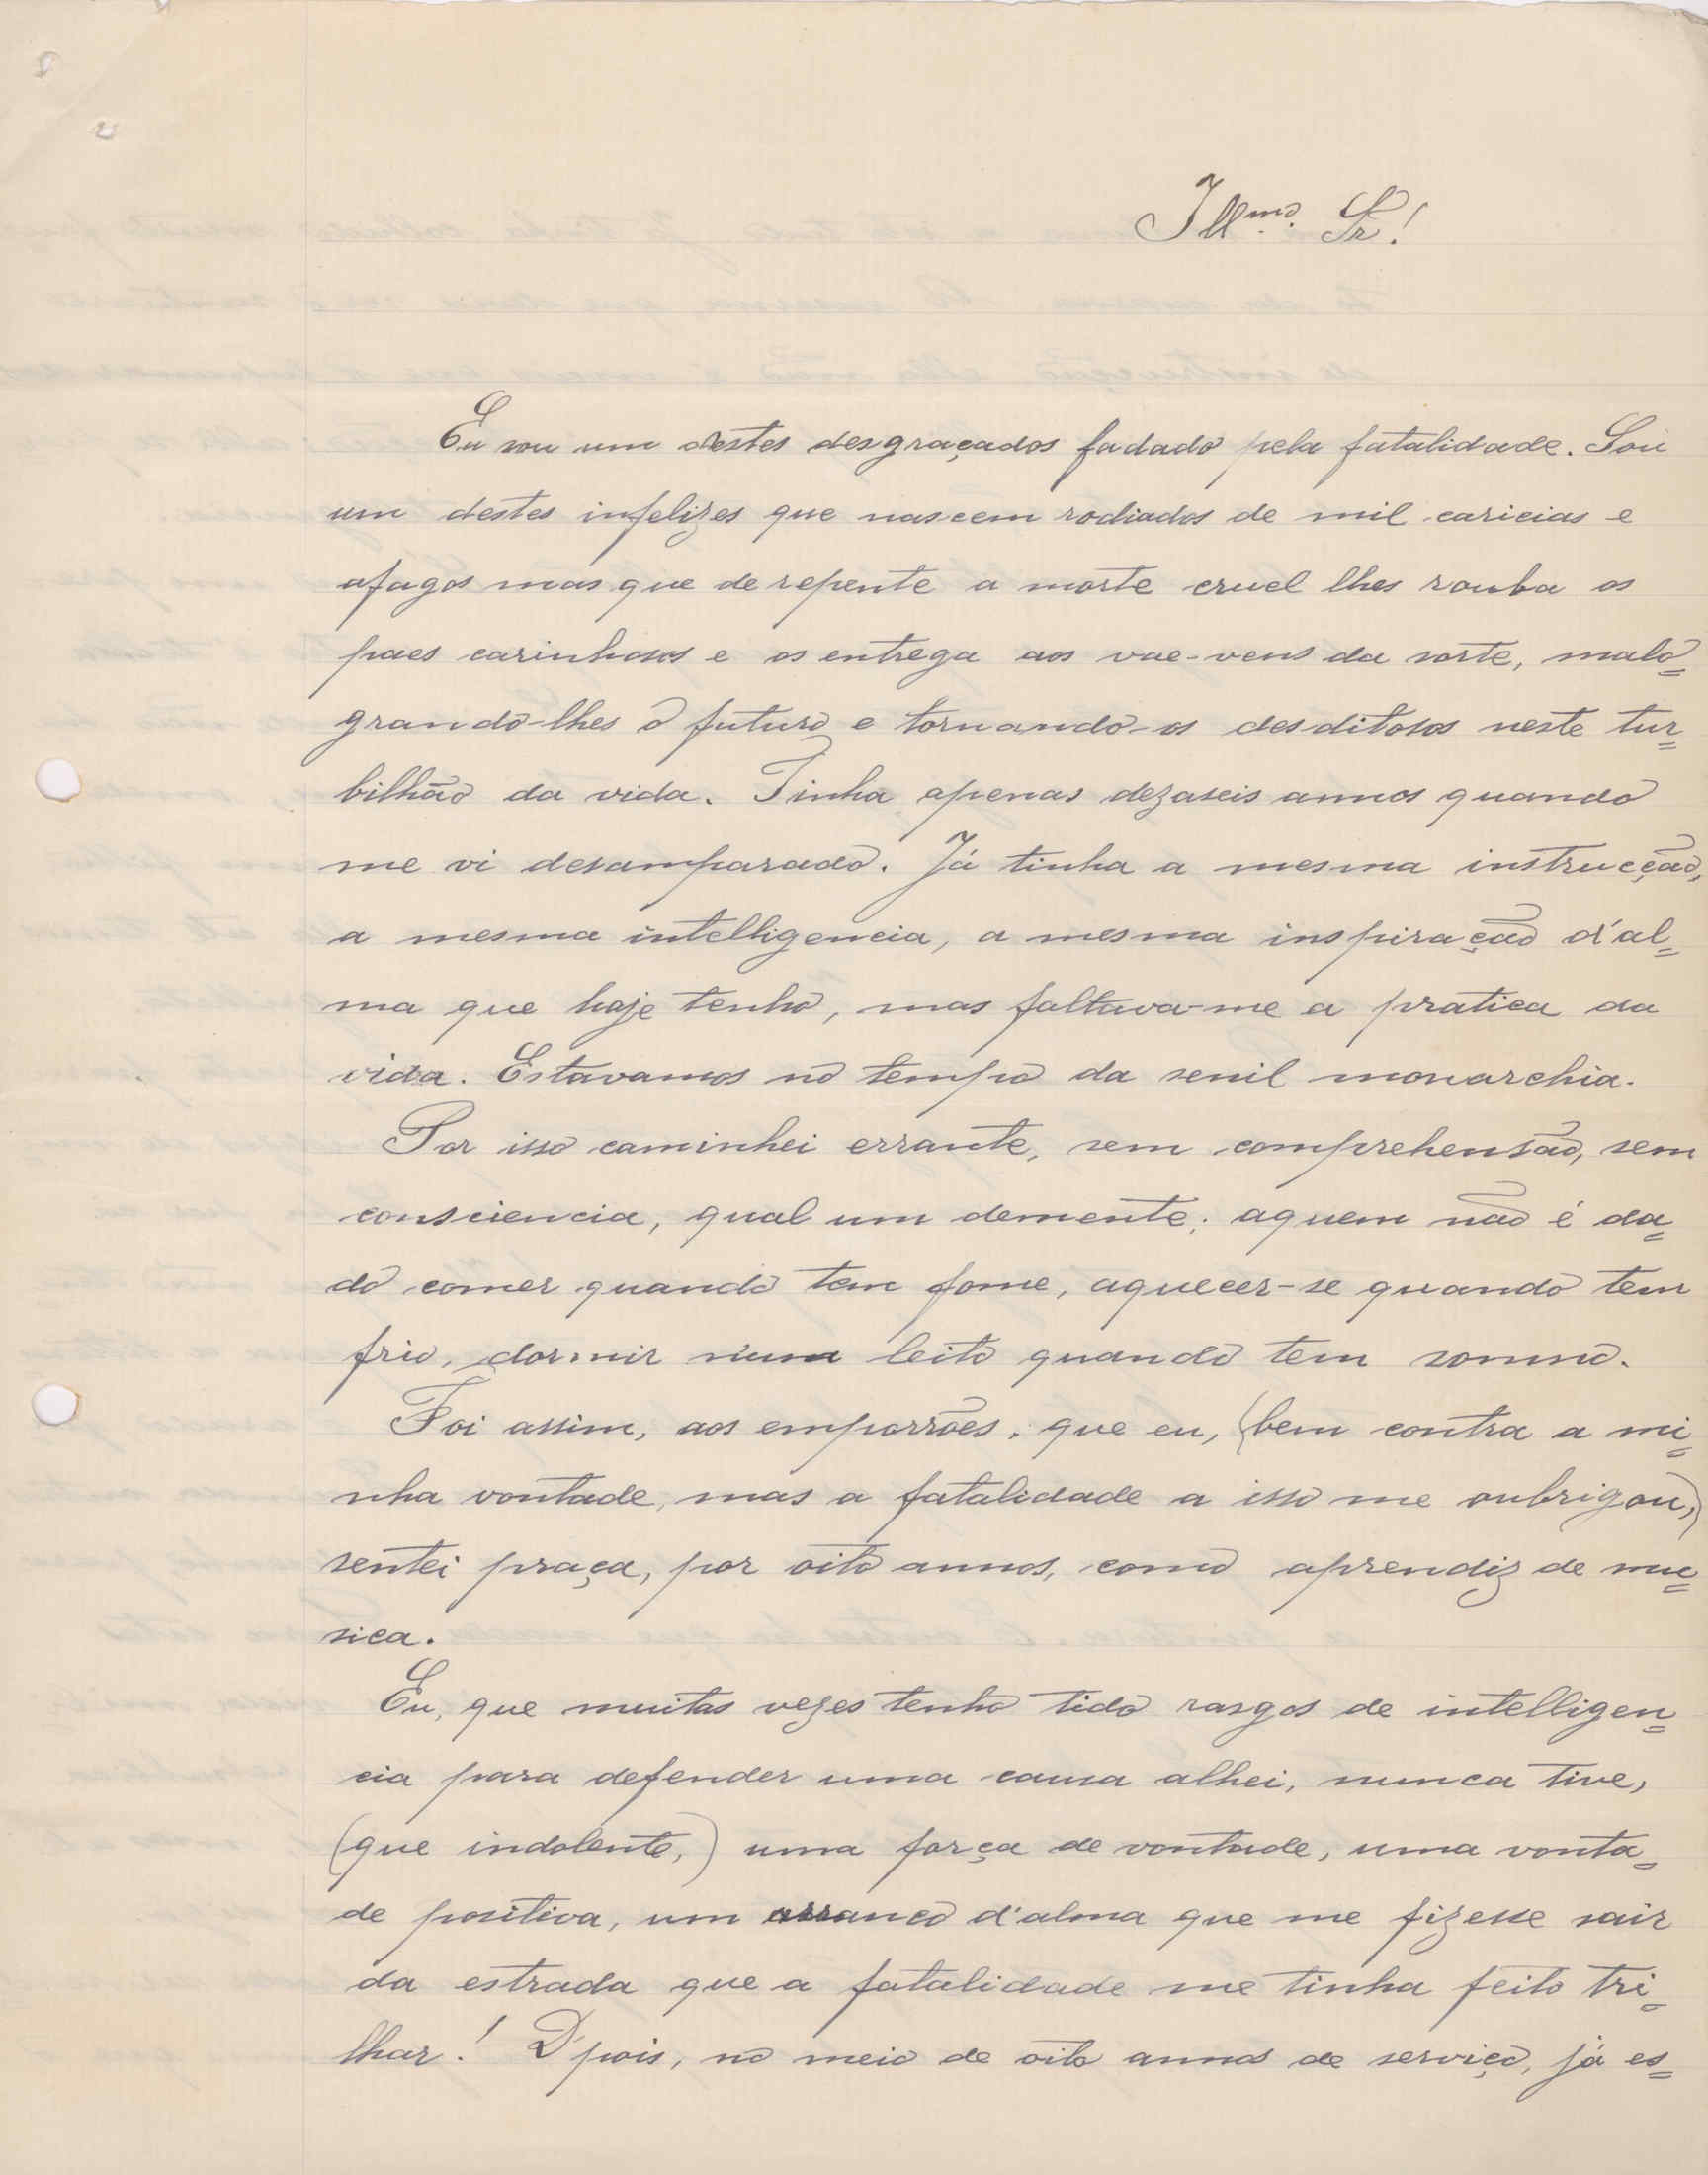 Illmo. Sr!
Eu sou um destes desgraçados fadado pela fatalidade. Sou
um destes infelizes que nascem rodiados de mil caricias e
afagos mas que de repente a morte cruel lhes rouba os
paes carinhosos e os entrega aos vae-vens da sorte, malo=
grando-lhes o futuro e tornando-os desditosos neste tur=
bilhão da vida. Tinha apenas dezaseis annos quando
me vi desamparado. Já tinha a mesma instrucção,
a mesma intelligencia, a mesma inspiração d'al=
ma que hoje tenho, mas faltava-me a pratica da
vida. Estavamos no tempo da senil monarchia.
Por isso caminhei errante, sem comprehensão, sem
consciencia, qual um demente; aquem não é da=
do comer quando tem fome, aquecer-se quando tem
frio, dormir num leito quando tem somno.
Foi assim, aos emporrões, que eu, (bem contra a mi=
nha vontade, mas a fatalidade a isso me oubrigou,)
sentei praça, por oito annos, como aprendiz de mu=
sica.
Eu, que muitas vezes tenho tido rasgos de intelligen=
cia para defender uma causa alhei, nunca tive,
(que indolente,) uma força de vontade, uma vonta=
de positiva, um arranco d'alma que me fizesse sair
da estrada que a fatalidade me tinha feito tri=
lhar! D'pois, no meio de oito annos de serviço, já es=